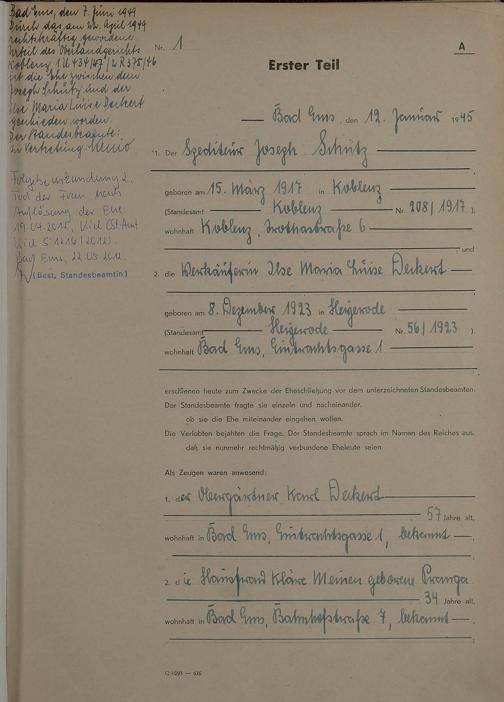 Bad Ems, den 7. Juni 1949
Durch das am 22. April 1949
rechtskräftig gewordene
Urteil des Oberlandgerichts
Koblenz 1 U 434/47 / 2 R 375/46
ist die Ehe zwischen dem
Joseph Schütz und der
Ilse Maria Luise Deckert
geschieden worden.
Der Standesbeamte:
In Vertretung:
Folgebeurkundung 2.
Tod der Frau nach
Auflösung der Ehe.
19.04.2012, Kiel (StAmt
Kiel S 1216/2012).
Bad Ems, 22.05.2012
(Best, Standesbeamtin)
Nr. 1
A
Erster Teil
Bad Ems, den 12. Januar 1945
1. Der Spediteur Joseph Schütz
geboren am 15. März 1917 in Koblenz
(Standesamt Koblenz Nr. 208/1917).
wohnhaft Koblenz, 6
und
2. die Verkäuferin Ilse Maria Luise Deckert
geboren am 8. Dezember 1923 in Heigerode
(Standesamt Heigerode Nr. 56/1923).
wohnhaft Bad Ems, Eintrachtsgasse 1
erschienen heute zum Zwecke der Eheschließung vor dem unterzeichneten Standesbeamten.
Der Standesbeamte fragte sie einzeln und nacheinander,
ob sie die Ehe miteinander eingehen wollen.
Die Verlobten bejahten die Frage. Der Standesbeamte sprach im Namen des Reiches aus,
daß sie nunmehr rechtmäßig verbundene Eheleute seien.
Als Zeugen waren anwesend:
1. der Obergärtner Karl Deckert
57 Jahre alt,
wohnhaft in Bad Ems, Eintrachtsgasse 1, bekannt
2. die Hausfrau Kläre Meinen geborene Pranga
34 Jahre alt,
wohnhaft in Bad Ems, Bahnhofstraße 7, bekannt